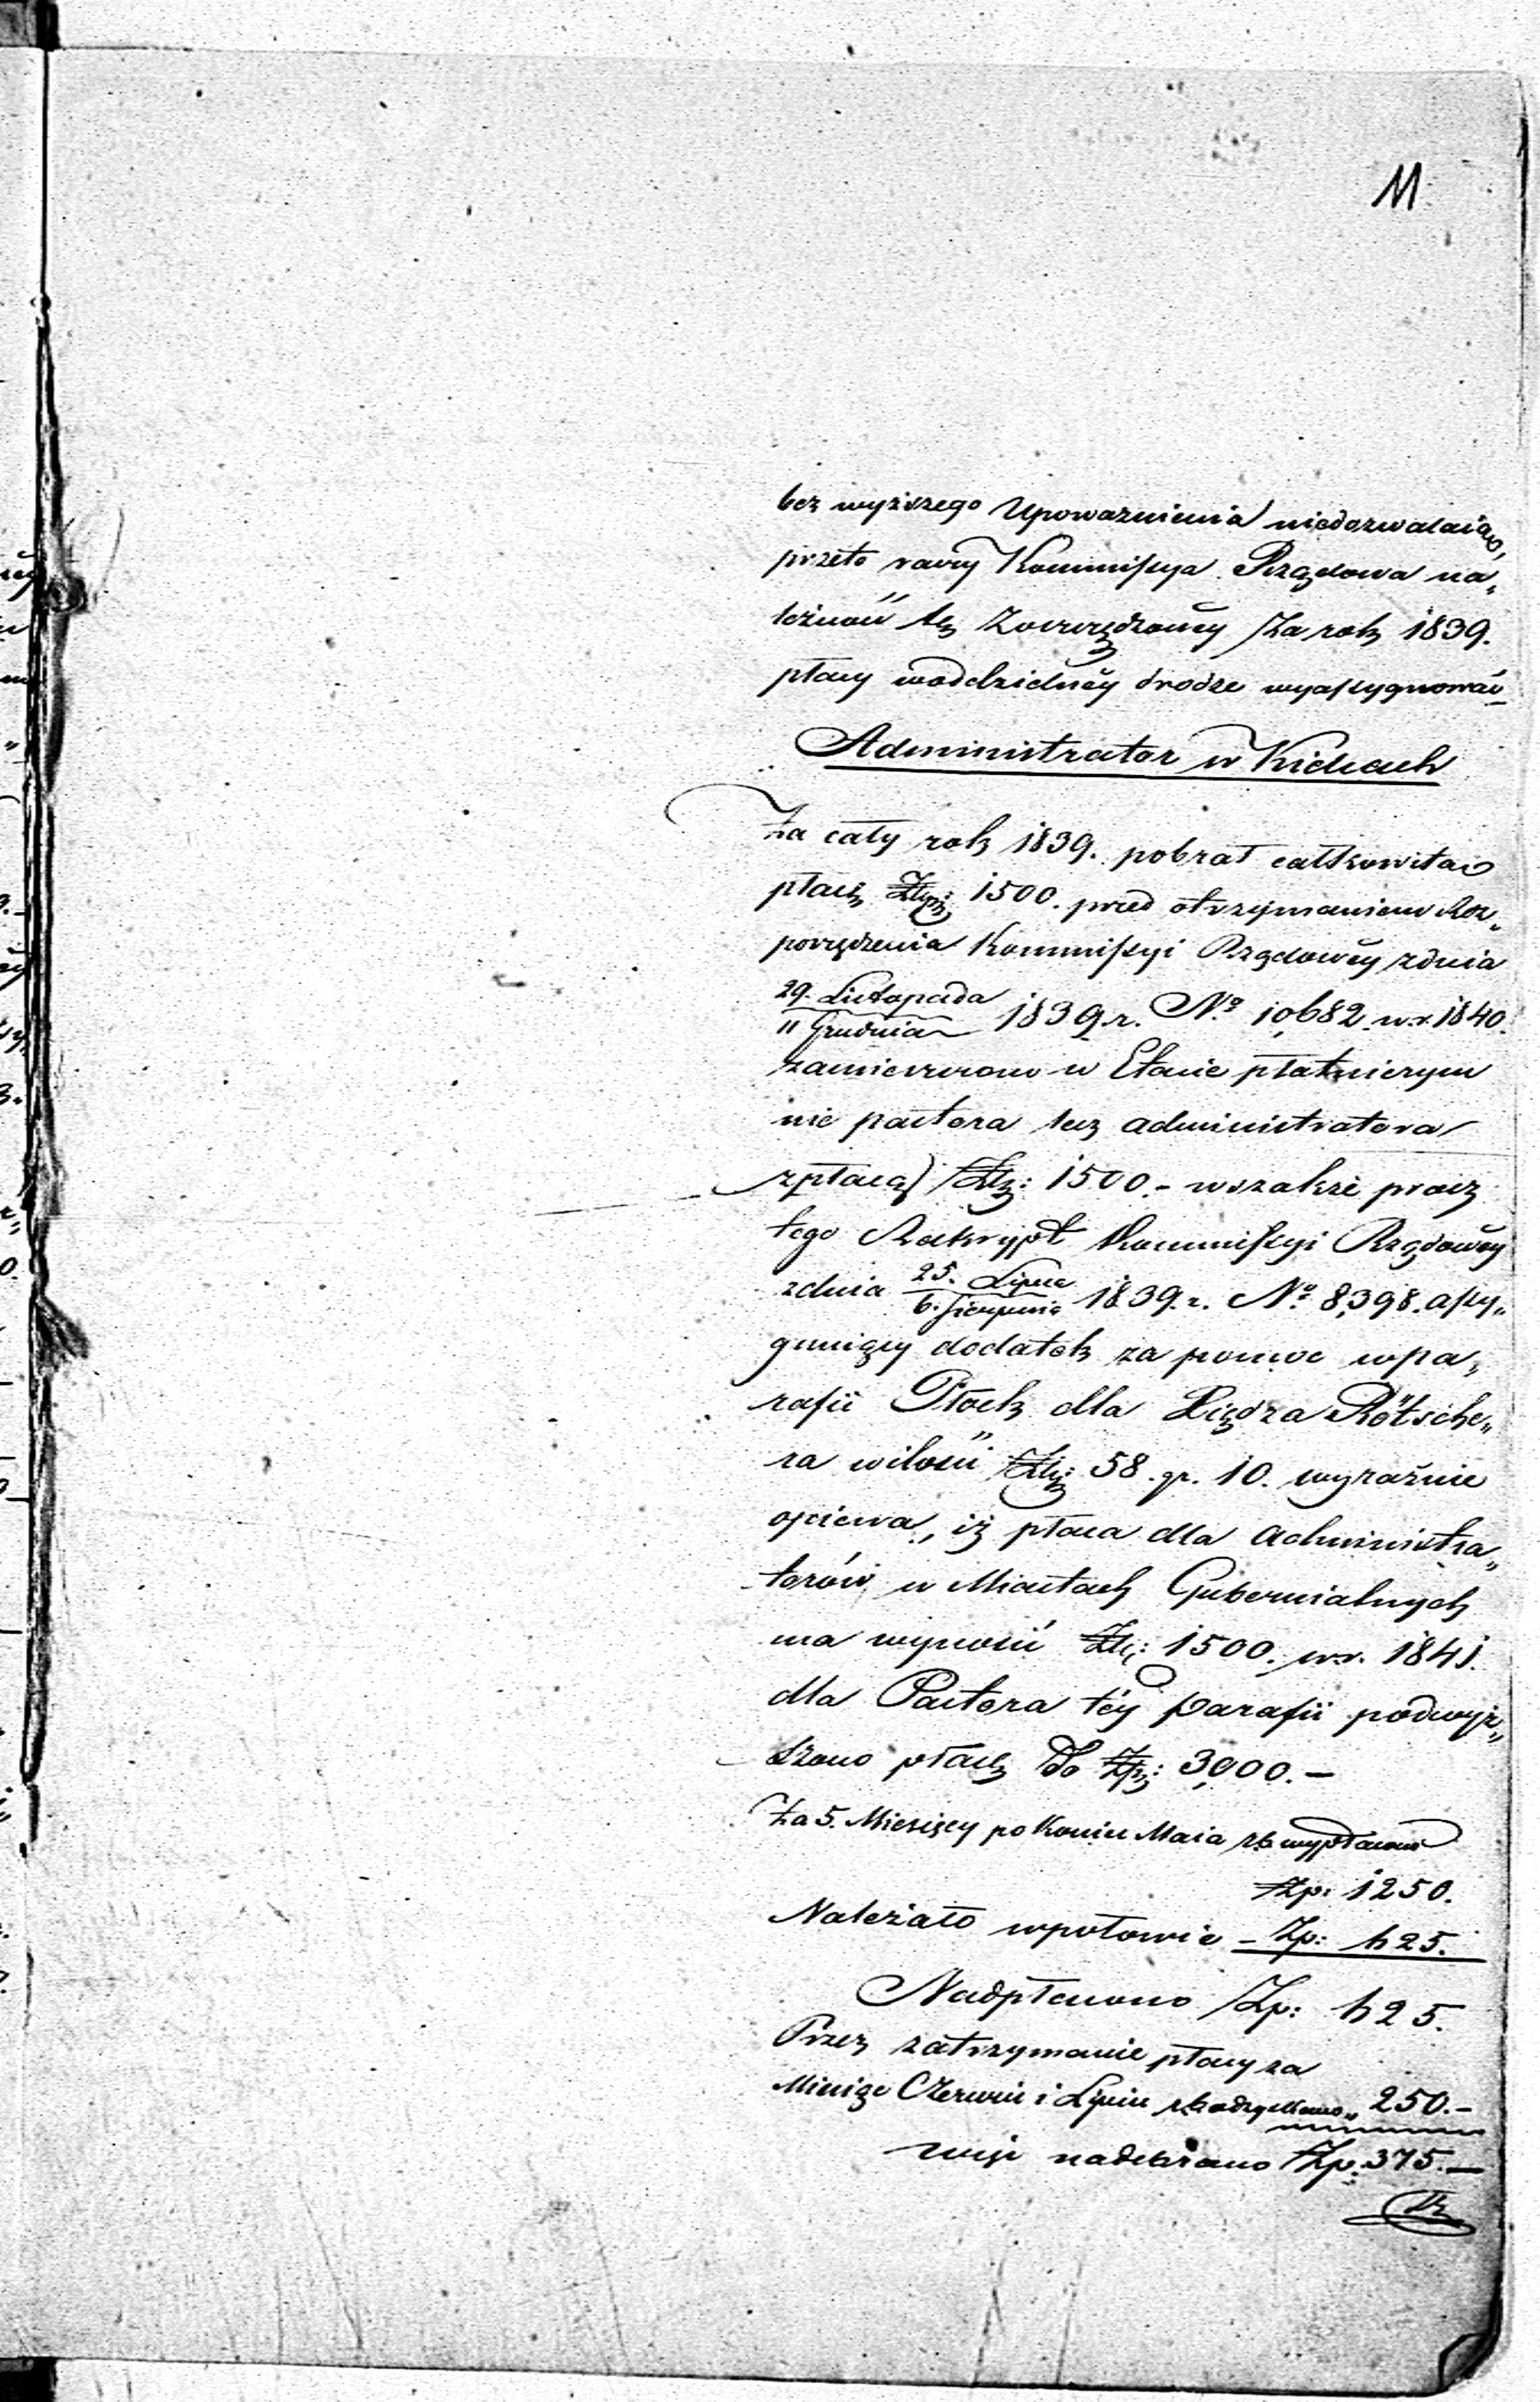 11
bez wyższego Upoważnienia niedozwalaią,
przeto raczy Kommissya Rządowa na„
leżność tę Zaurzędowéy Za rok 1839.
płacy woddzielnéy drodze wyassygnować
Administrator w Kielcach
Za cały rok 1839. pobrał całkowitą
płacę Złp: 1500. przed otrzymaniem Roz„
porządzenia Kommissyi Rządowéy zdnia
29. Listopada / 11 Grudnia 1839 r. No 10,682. w r. 1840.
zamieszczono w Etacie płatniczym
nie pastora lecz administratora
zpłacą Złp: 1500.- wszakże prócz
tego Reskrypt Kommissyi Rządowéy
zdnia 25. Lipca / 6. Sierpnia 1839. r. No 8,398. assy„
gnuiący dodatek za pomoc wpa„
rafii Płock dla Xiędza Rötsche„
ra wilości Złp: 58. gr. 10. wyraźnie
opiewa, iż płaca dla Administra„
torów w Miastach Gubernialnych
ma wynosić Złp: 1500. w r. 1841.
dla Pastora téy Parafii podwyż„
szono płacę do Złp: 3,000.-
Za 5. Miesięcy po Koniec Maia rb wypłacono
Złp: 1250.
Należało wpołowie - Zp: 625.
Nadpłacono Zp: 625.
Przez zatrzymanie płacy za
Miesiące Czerwiec i Lipiec rb odzyskano „ 250.-
więc nadebrano Zp: 375.-